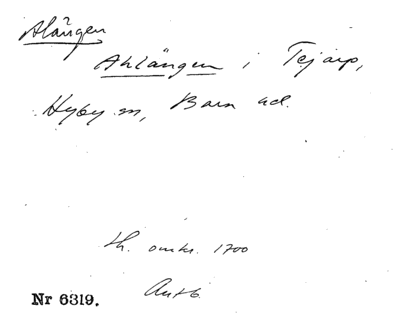 Alängen
Ahlängen i Tejarp,
Hyby sn, Bara hd.
th. omkr. 1700
Nr 6319.